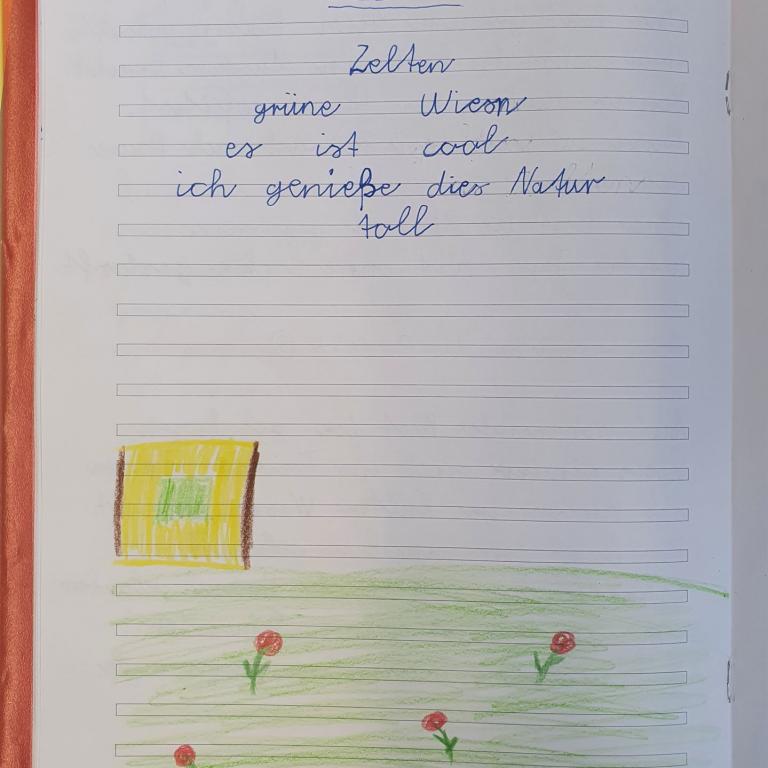 Zelten
grüne Wiesn
es ist cool
ich genieße dies Natur
toll